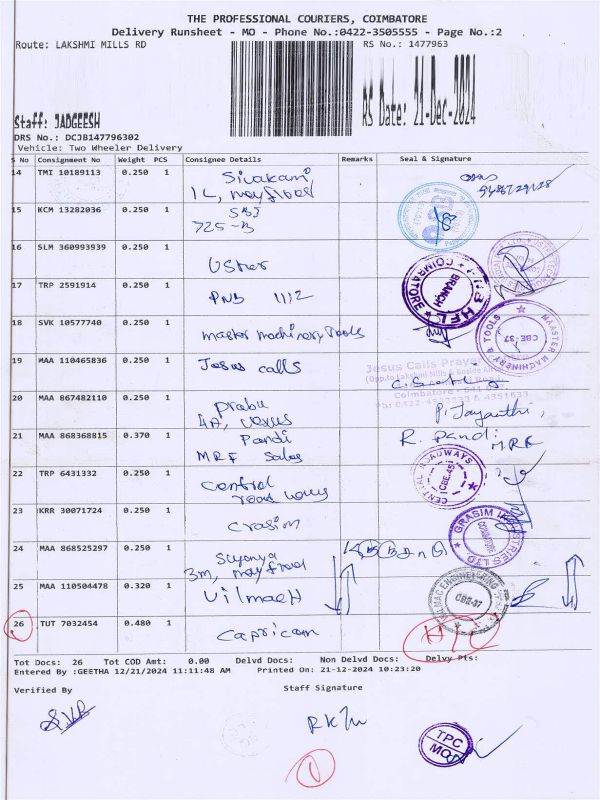 THE PROFESSIONAL COURIERS, COIMBATORE
Delivery Runsheet - MO - Phone No.:0422-3505555 - Page No.:2
Route: LAKSHMI MILLS RD
RS No.: 1477963
RS Date: 21-Dec-2024
Staff: JADGEESH
DRS No.: DCJB147796302
Vehicle: Two Wheeler Delivery
S No Consignment No Weight PCS Consignee Details Remarks Seal & Signature
14 TMI 10189113 0.250 1 Sivakami
1L, mayflood
15 KCM 13282036 0.250 1 SBI
725-B
16 SLM 360993939 0.250 1 Usher
17 TRP 2591914 0.250 1 PNB 1112
PNB HFL
BRANCH
COIMBATORE
18 SVK 10577740 0.250 1 master machinery Tools
MAASTER MACHINERY & TOOLS
CBE-37
19 MAA 110465836 0.250 1 Jesus calls
Jesus Calls Praye
(Opp.to Lakshmi Mills &
Coimbatore -
Ph: 0422- & 4351633
20 MAA 867482110 0.250 1 prabu
4A, venus
P. Jayanthi,
21 MAA 868368815 0.370 1 Pandi
MRF Sales
R. Pandi
MRF
22 TRP 6431332 0.250 1 Central
road ways
CENTRAL ROADWAYS
CBE-45
23 KRR 30071724 0.250 1 Grasim
GRASIM INDUSTRIES LTD
24 MAA 868525297 0.250 1
3m, mayflood
25 MAA 110504478 0.320 1 Uilmach
MAC ENGINEERING
CBE-37
26 TUT 7032454 0.480 1 Capricorn
Tot Docs: 26 Tot COD Amt: 0.00 Delvd Docs: Non Delvd Docs: Delvy Pts:
Entered By :GEETHA 12/21/2024 11:11:48 AM Printed On: 21-12-2024 10:23:20
Verified By
Staff Signature
TPC
MO
1